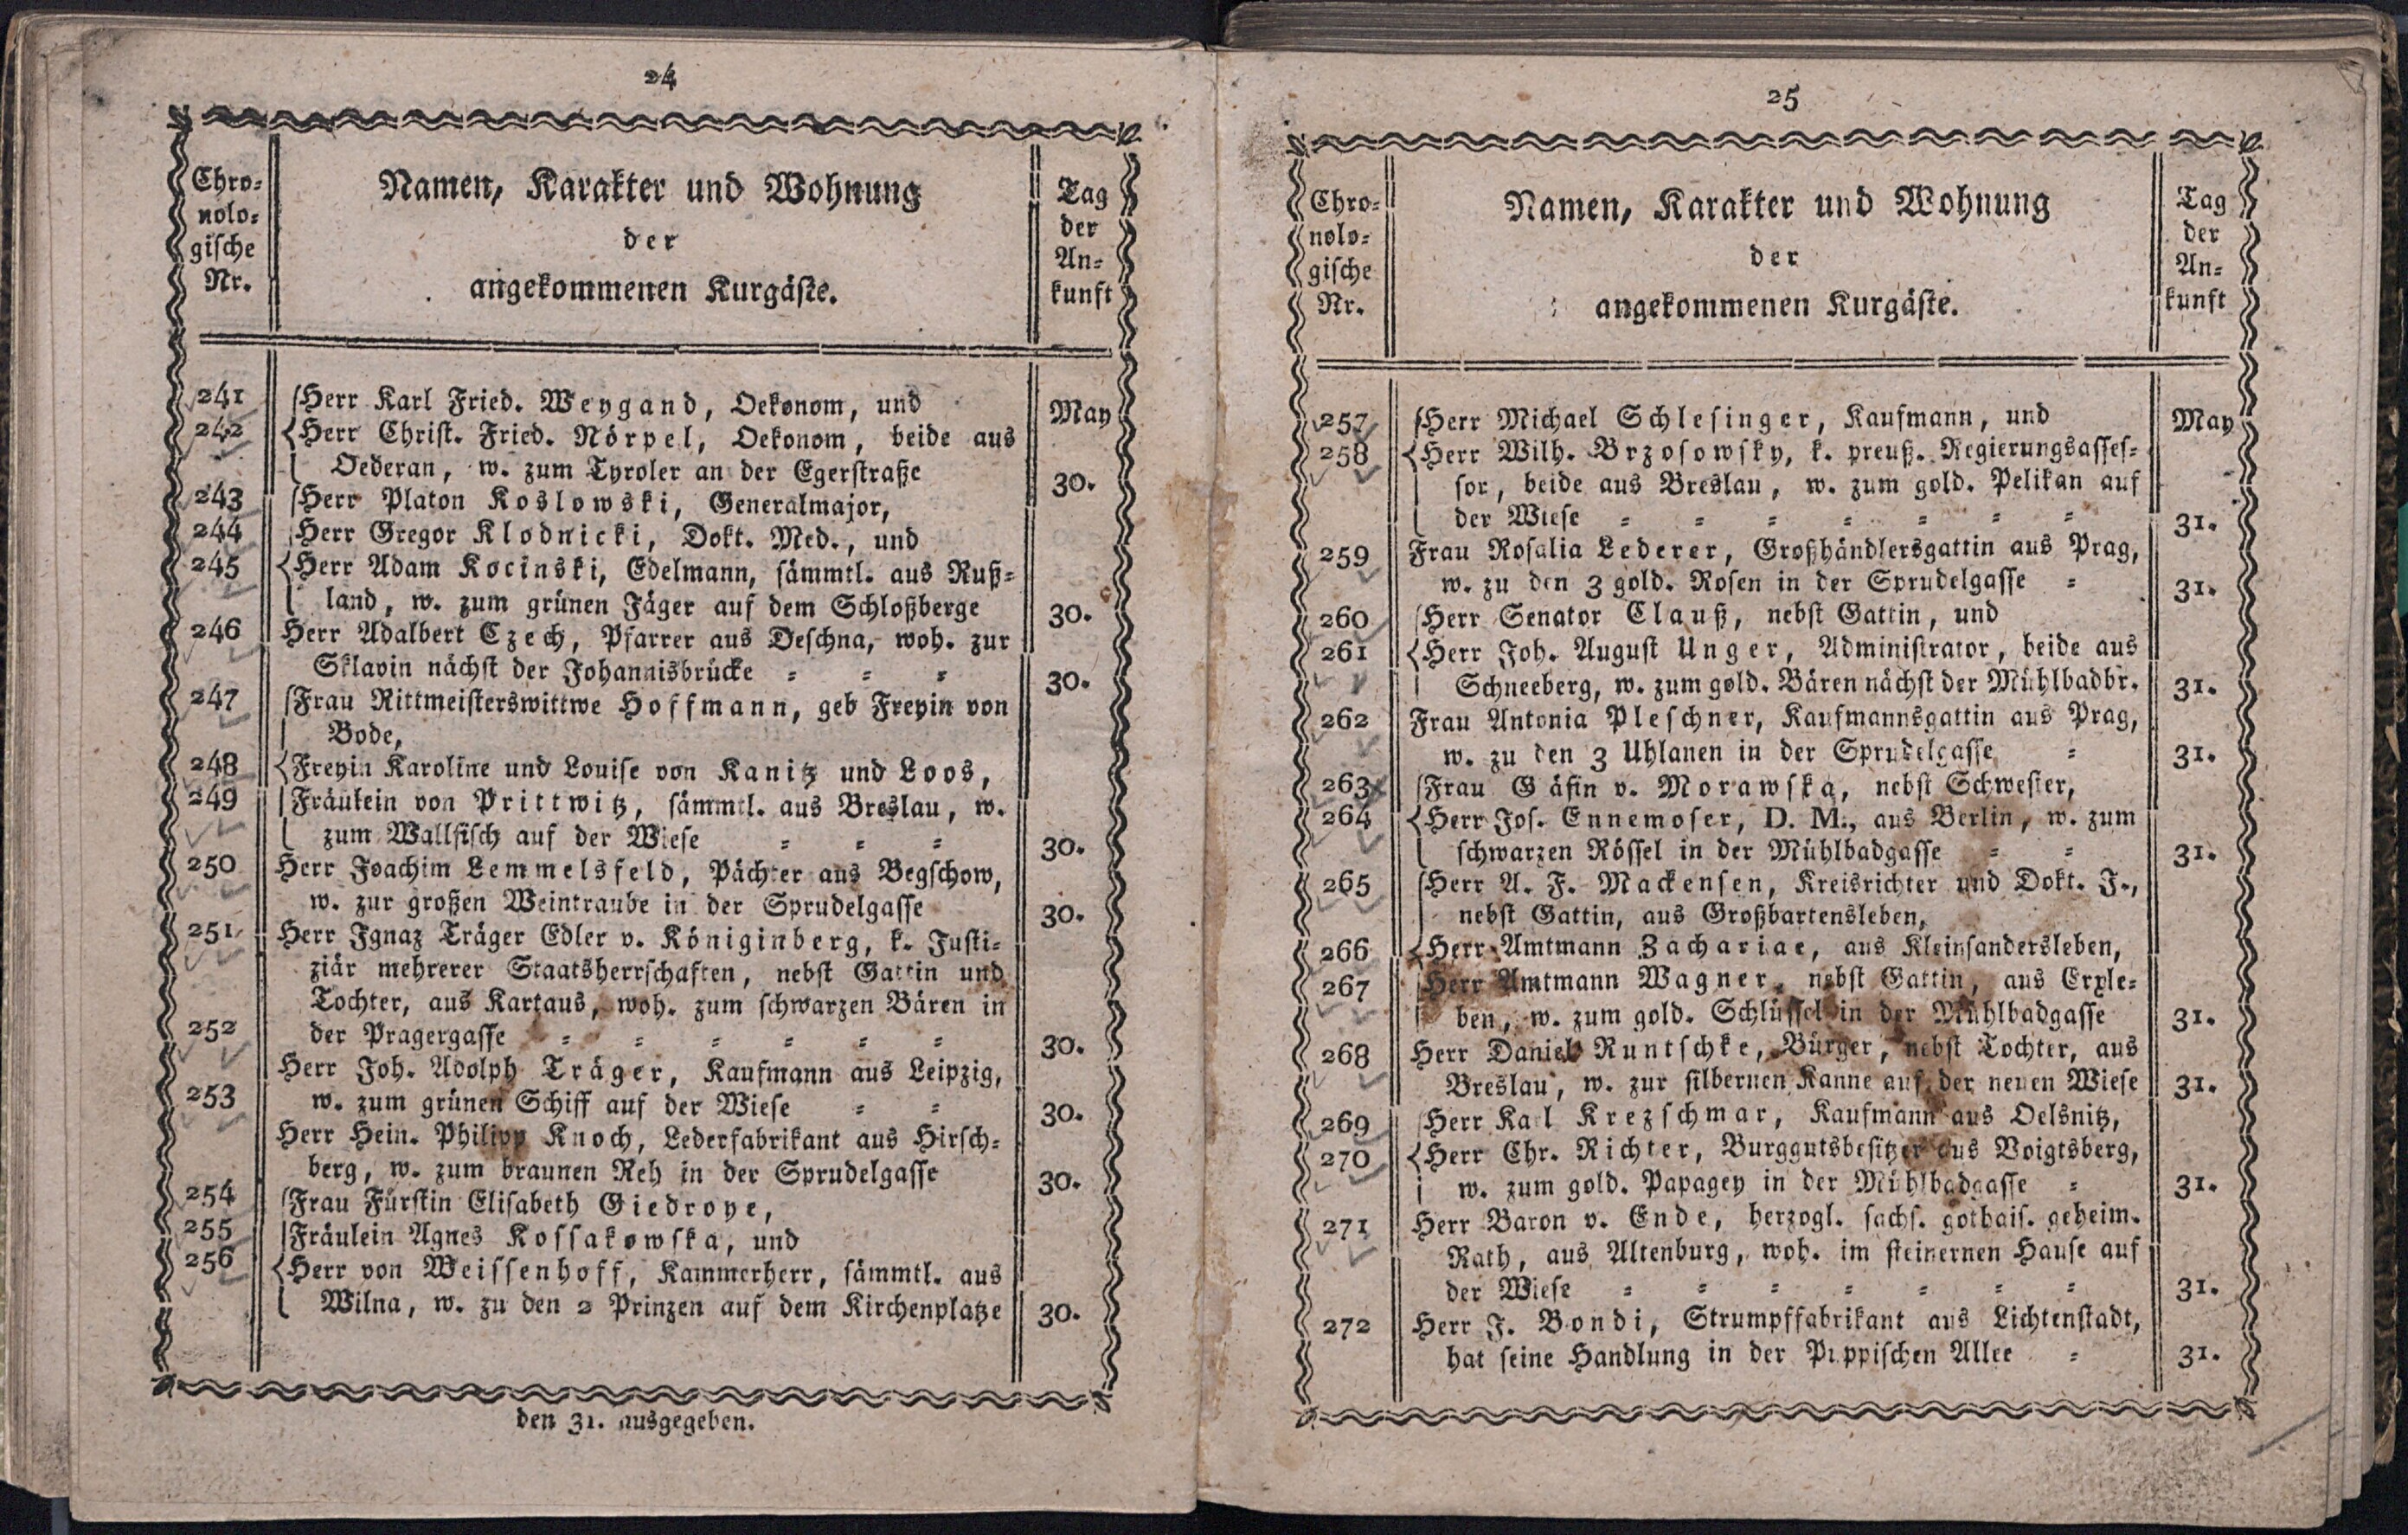 24
Chro-
nolo-
gische
Nr.
Namen, Karakter und Wohnung
der
angekommenen Kurgäste.
Tag
der
An-
kunft
241 Herr Karl Fried. Weygand, Oekonom, und May
242 Herr Christ. Fried. Nörpel, Oekonom, beide aus
Oederan, w. zum Tyroler an der Egerstraße 30.
243 Herr Platon Koslowski, Generalmajor,
244 Herr Gregor Klodnicki, Dokt. Med., und
245 Herr Adam Kocinski, Edelmann, sämmtl. aus Ruß-
land, w. zum grünen Jäger auf dem Schloßberge 30.
246 Herr Adalbert Czech, Pfarrer aus Deschna, woh. zur
Sklavin nächst der Johannisbrücke - - - 30.
247 Frau Rittmeisterswittwe Hoffmann, geb Freyin von
Bode,
248 Freyin Karoline und Louise von Kanitz und Loos,
249 Fräulein von Prittwitz, sämmtl. aus Breslau, w.
zum Wallfisch auf der Wiese - - - 30.
250 Herr Joachim Lemmelsfeld, Pächter aus Begschow,
w. zur großen Weintraube in der Sprudelgasse 30.
251 Herr Ignaz Träger Edler v. Königinberg, k. Justi-
ziär mehrerer Staatsherrschaften, nebst Gattin und
Tochter, aus Kartaus, woh. zum schwarzen Bären in
252 der Pragergasse - - - - - - 30.
Herr Joh. Adolph Träger, Kaufmann aus Leipzig,
253 w. zum grünen Schiff auf der Wiese - - 30.
Herr Hein. Philipp Knoch, Lederfabrikant aus Hirsch-
berg, w. zum braunen Reh in der Sprudelgasse 30.
254 Frau Fürstin Elisabeth Giedroye,
255 Fräulein Agnes Kossakowska, und
256 Herr von Weissenhoff, Kammerherr, sämmtl. aus
Wilna, w. zu den 2 Prinzen auf dem Kirchenplatze 30.
den 31. ausgegeben.
25
Chro-
nolo-
gische
Nr.
Namen, Karakter und Wohnung
der
angekommenen Kurgäste.
Tag
der
An-
kunft
257 Herr Michael Schlesinger, Kaufmann, und May
258 Herr Wilh. Brzosowsky, k. preuß. Regierungsasses-
sor, beide aus Breslau, w. zum gold. Pelikan auf
der Wiese - - - - - - - 31.
259 Frau Rosalia Lederer, Großhändlersgattin aus Prag,
w. zu den 3 gold. Rosen in der Sprudelgasse - 31.
260 Herr Senator Clauß, nebst Gattin, und
261 Herr Joh. August Unger, Administrator, beide aus
Schneeberg, w. zum gold. Bären nächst der Mühlbadbr. 31.
262 Frau Antonia Pleschner, Kaufmannsgattin aus Prag,
w. zu den 3 Uhlanen in der Sprudelgasse - 31.
263 Frau Gäfin v. Morawska, nebst Schwester,
264 Herr Jos. Ennemoser, D. M., aus Berlin, w. zum
schwarzen Rössel in der Mühlbadgasse - - 31.
265 Herr A. F. Mackensen, Kreisrichter und Dokt. J.,
nebst Gattin, aus Großbartensleben,
266 Herr Amtmann Zachariae, aus Kleinsandersleben,
267 Herr Amtmann Wagner, nebst Gattin, aus Erxle-
ben, w. zum gold. Schlüssel in der Mühlbadgasse 31.
268 Herr Daniel Runtschke, Bürger, nebst Tochter, aus
Breslau, w. zur silbernen Kanne auf der neuen Wiese 31.
269 Herr Karl Krezschmar, Kaufmann aus Oelsnitz,
270 Herr Chr. Richter, Burggutsbesitzer aus Voigtsberg,
w. zum gold. Papagey in der Mühlbadgasse - 31.
271 Herr Baron v. Ende, herzogl. sachs. gothais. geheim.
Rath, aus Altenburg, woh. im steinernen Hause auf
der Wiese - - - - - - - 31.
272 Herr J. Bondi, Strumpffabrikant aus Lichtenstadt,
hat seine Handlung in der Puppischen Allee - 31.